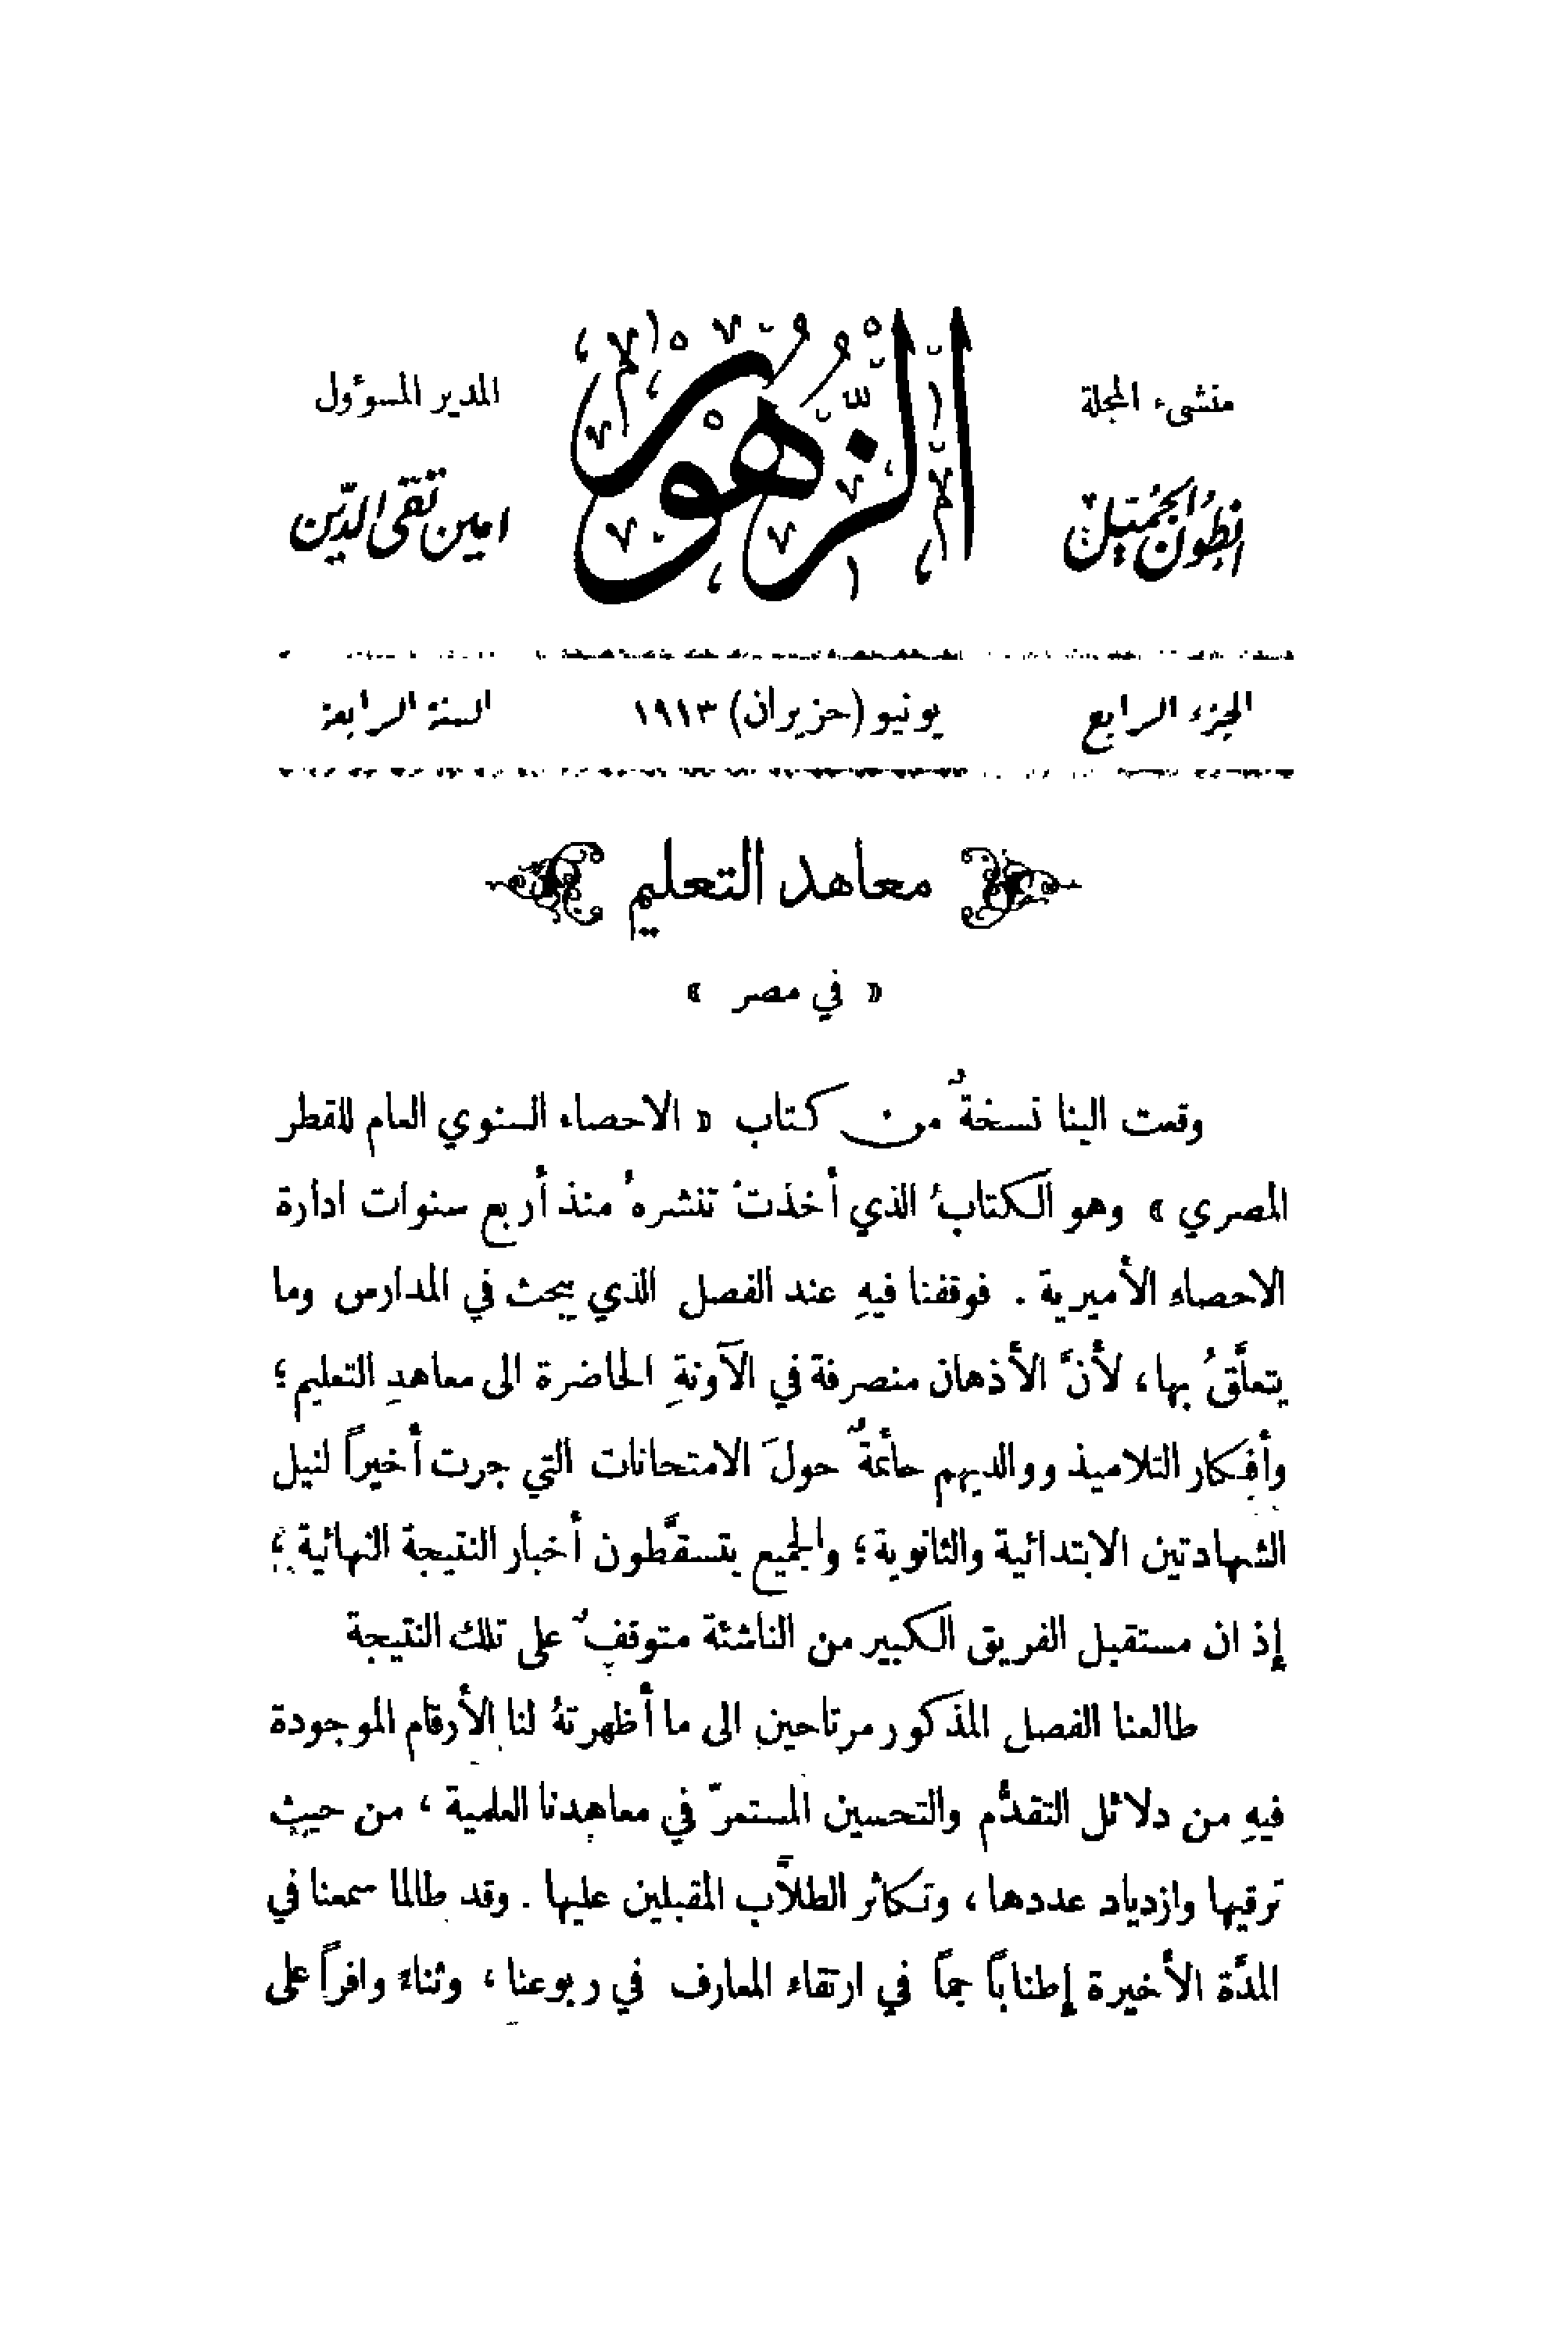 منشىء المجلة
الزهور
المدير المسوٴول
انطون الجميّل
امين تقي الدّين
الجزء الرابع يونيو (حزيران) ١٩١٣ السنة الرابعة
معاهد التعليم
« في مصر »
وقعت الينا نسخةٌ من كتاب « الاحصاء السنوي العام للقطر
المصري » وهو الكتابُ الذي أخذت تنشرهُ منذ أربع سنوات ادارة
الاحصاء الأميرية . فوقفنا فيهِ عند الفصل الذي يبحث في المدارس وما
يتعلَّقُ بها، لأنَّ الأذهان منصرفة في الآونةِ الحاضرة الى معاهدِ التعليم؛
وأفكار التلاميذ ووالديهم حائمةٌ حولَ الامتحانات التي جرت أخيراً لنيل
الشهادتين الابتدائية والثانوية؛ والجميع يتسقَّطون أخبار النتيجة النهائية؛
إذ ان مستقبل الفريق الكبير من الناشئة متوقفٌ على تلك النتيجة
طالعنا الفصل المذكور مرتاحين الى ما أظهرتهُ لنا الأرقام الموجودة
فيهِ من دلائل التقدُّم والتحسين المستمرّ في معاهدنا العلمية ، من حيث
ترقيها وازدياد عددها ، وتكاثر الطلاَّب المقبلين عليها . وقد طالما سمعنا في
المدَّة الأخيرة إطناباً جمّاً في ارتقاء المعارف في ربوعنا ، وثناءً وافراً على